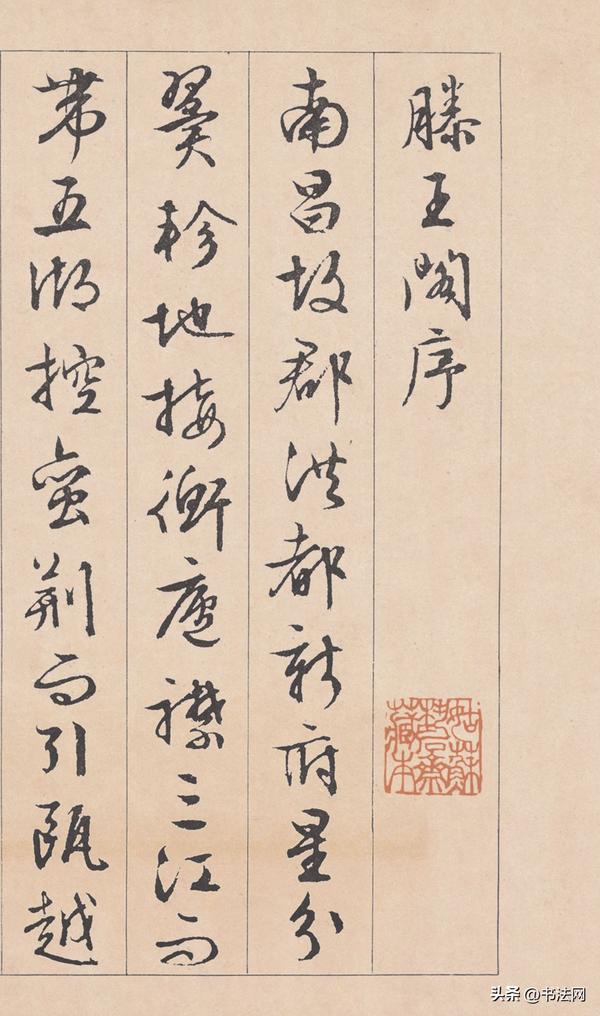 滕王阁序
南昌故郡洪都新府星分
翼轸地接衡庐襟三江而
带五湖控蛮荆而引瓯越
头条 @书法网